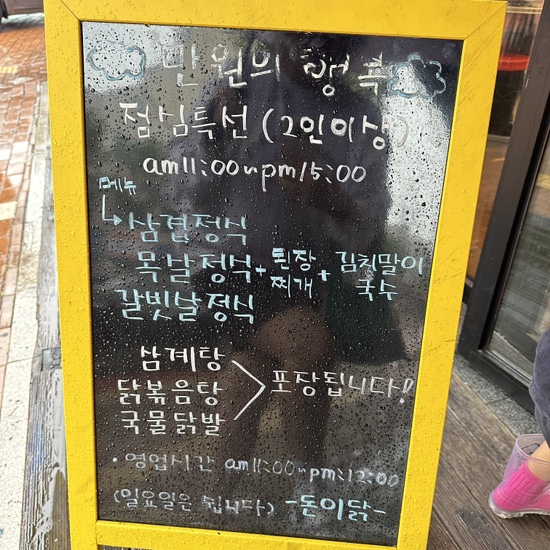 만원의 행복
점심특선 (2인이상)
am11:00~pm15:00
메뉴
삼겹정식
목살정식 + 된장찌개 + 김치말이국수
갈빗살정식
삼계탕
닭볶음탕 > 포장됩니다!
국물닭발
• 영업시간 am11:00~pm:12:00
(일요일은 쉽니다) -돈이닭-